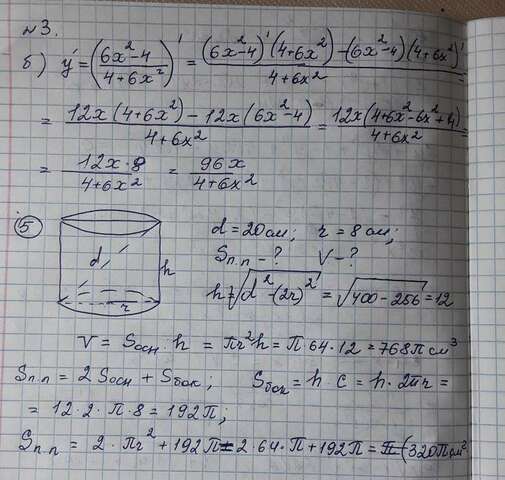 №3.
б) y' = ((6x² - 4)/(4 + 6x²))' = ((6x² - 4)'(4 + 6x²) - (6x² - 4)(4 + 6x²)')/(4 + 6x²) =
= (12x(4 + 6x²) - 12x(6x² - 4))/(4 + 6x²) = (12x(4 + 6x² - 6x² + 4))/(4 + 6x²) =
= (12x · 8)/(4 + 6x²) = 96x/(4 + 6x²)
5
d
r
h
d = 20 см; r = 8 см;
Sп.п - ? V - ?
h = √(d² - (2r)²) = √(400 - 256) = 12
V = Sосн · h = πr²h = π 64 · 12 = 768π см³
Sп.п = 2 Sосн + Sбок; Sбок = h · c = h · 2πr =
= 12 · 2 · π · 8 = 192π;
Sп.п = 2 · πr² + 192π = 2 · 64 · π + 192π = 320π см²